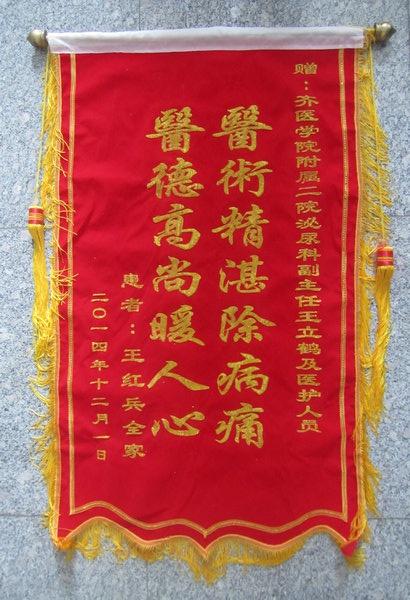 赠：齐医学院附属二院泌尿科副主任王立鹤及医护人员
醫術精湛除病痛
醫德高尚暖人心
患者：王红兵全家
二〇一四年十二月一日